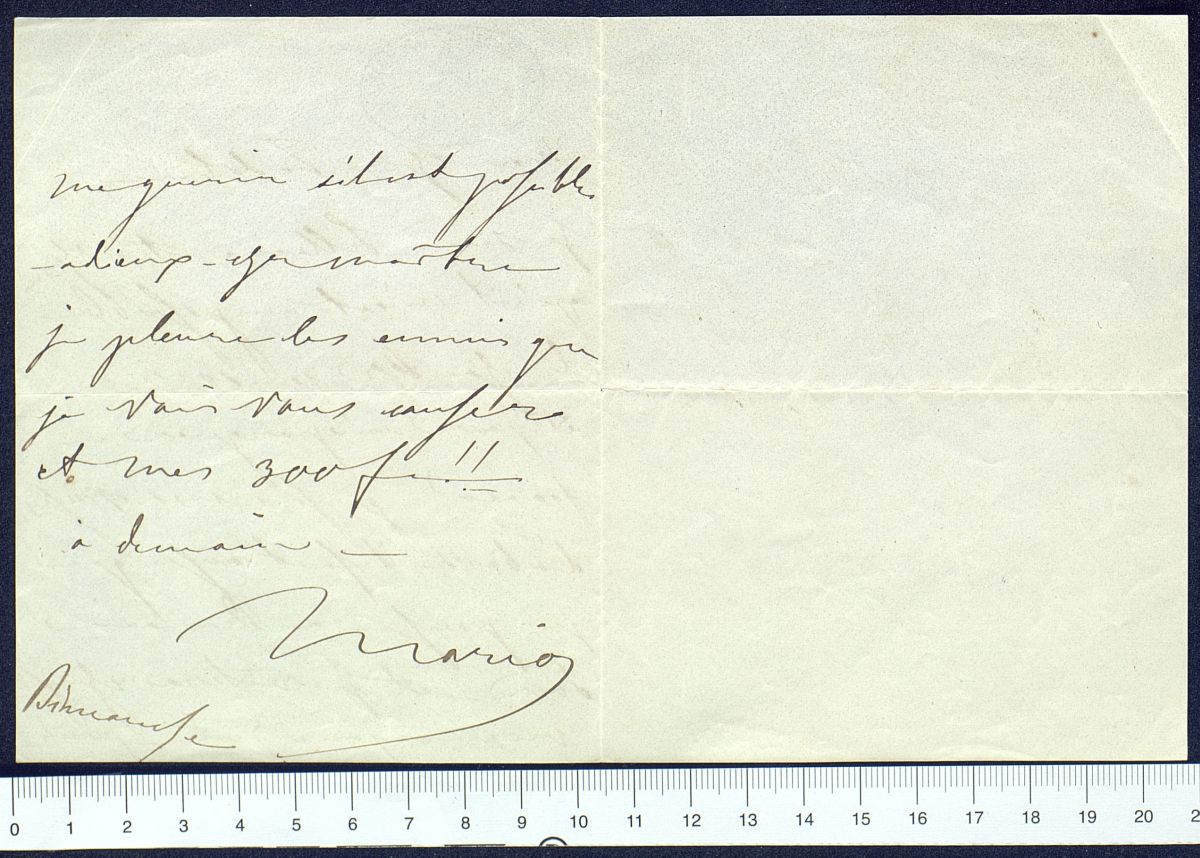 me guerrir s'il est possible
- adieux - cher maître
je pleure les ennuis que
je vais vous causer
et mes 300 f !!
à demain —
Mario
Dimanche
0 1 2 3 4 5 6 7 8 9 10 11 12 13 14 15 16 17 18 19 20 2